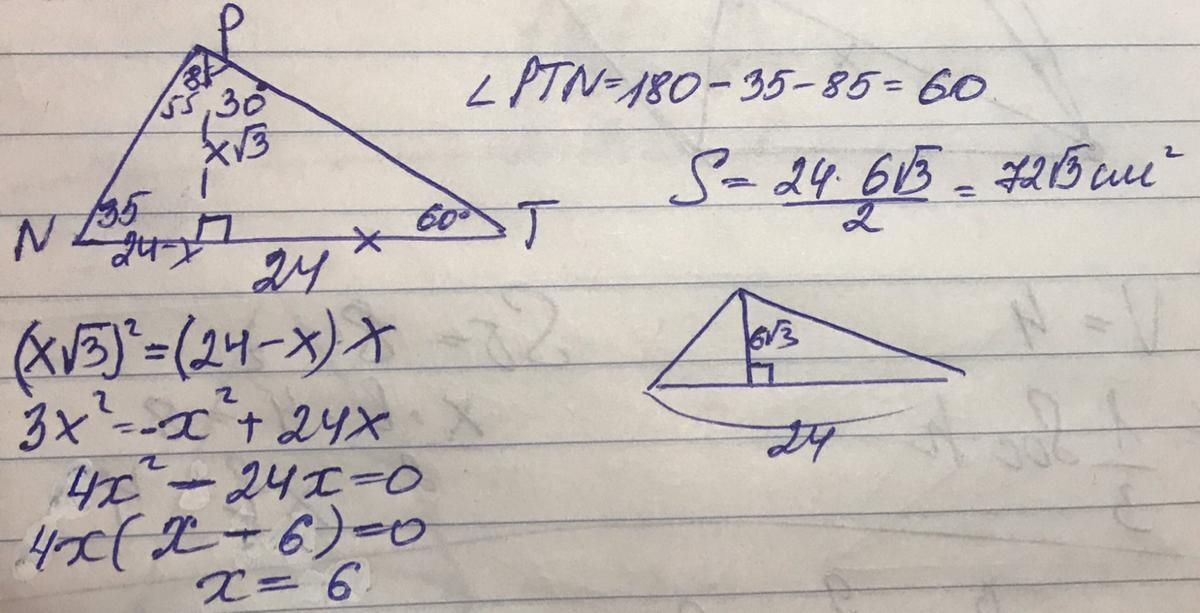 P
85
55 30
x√3
N 35 60° T
24-x x
24
∠PTN=180-35-85=60
S= 24·6√3/2 = 72√3 см²
(x√3)²=(24-x)·x
3x²=-x²+24x
4x²-24x=0
4x(x-6)=0
x=6
6√3
24